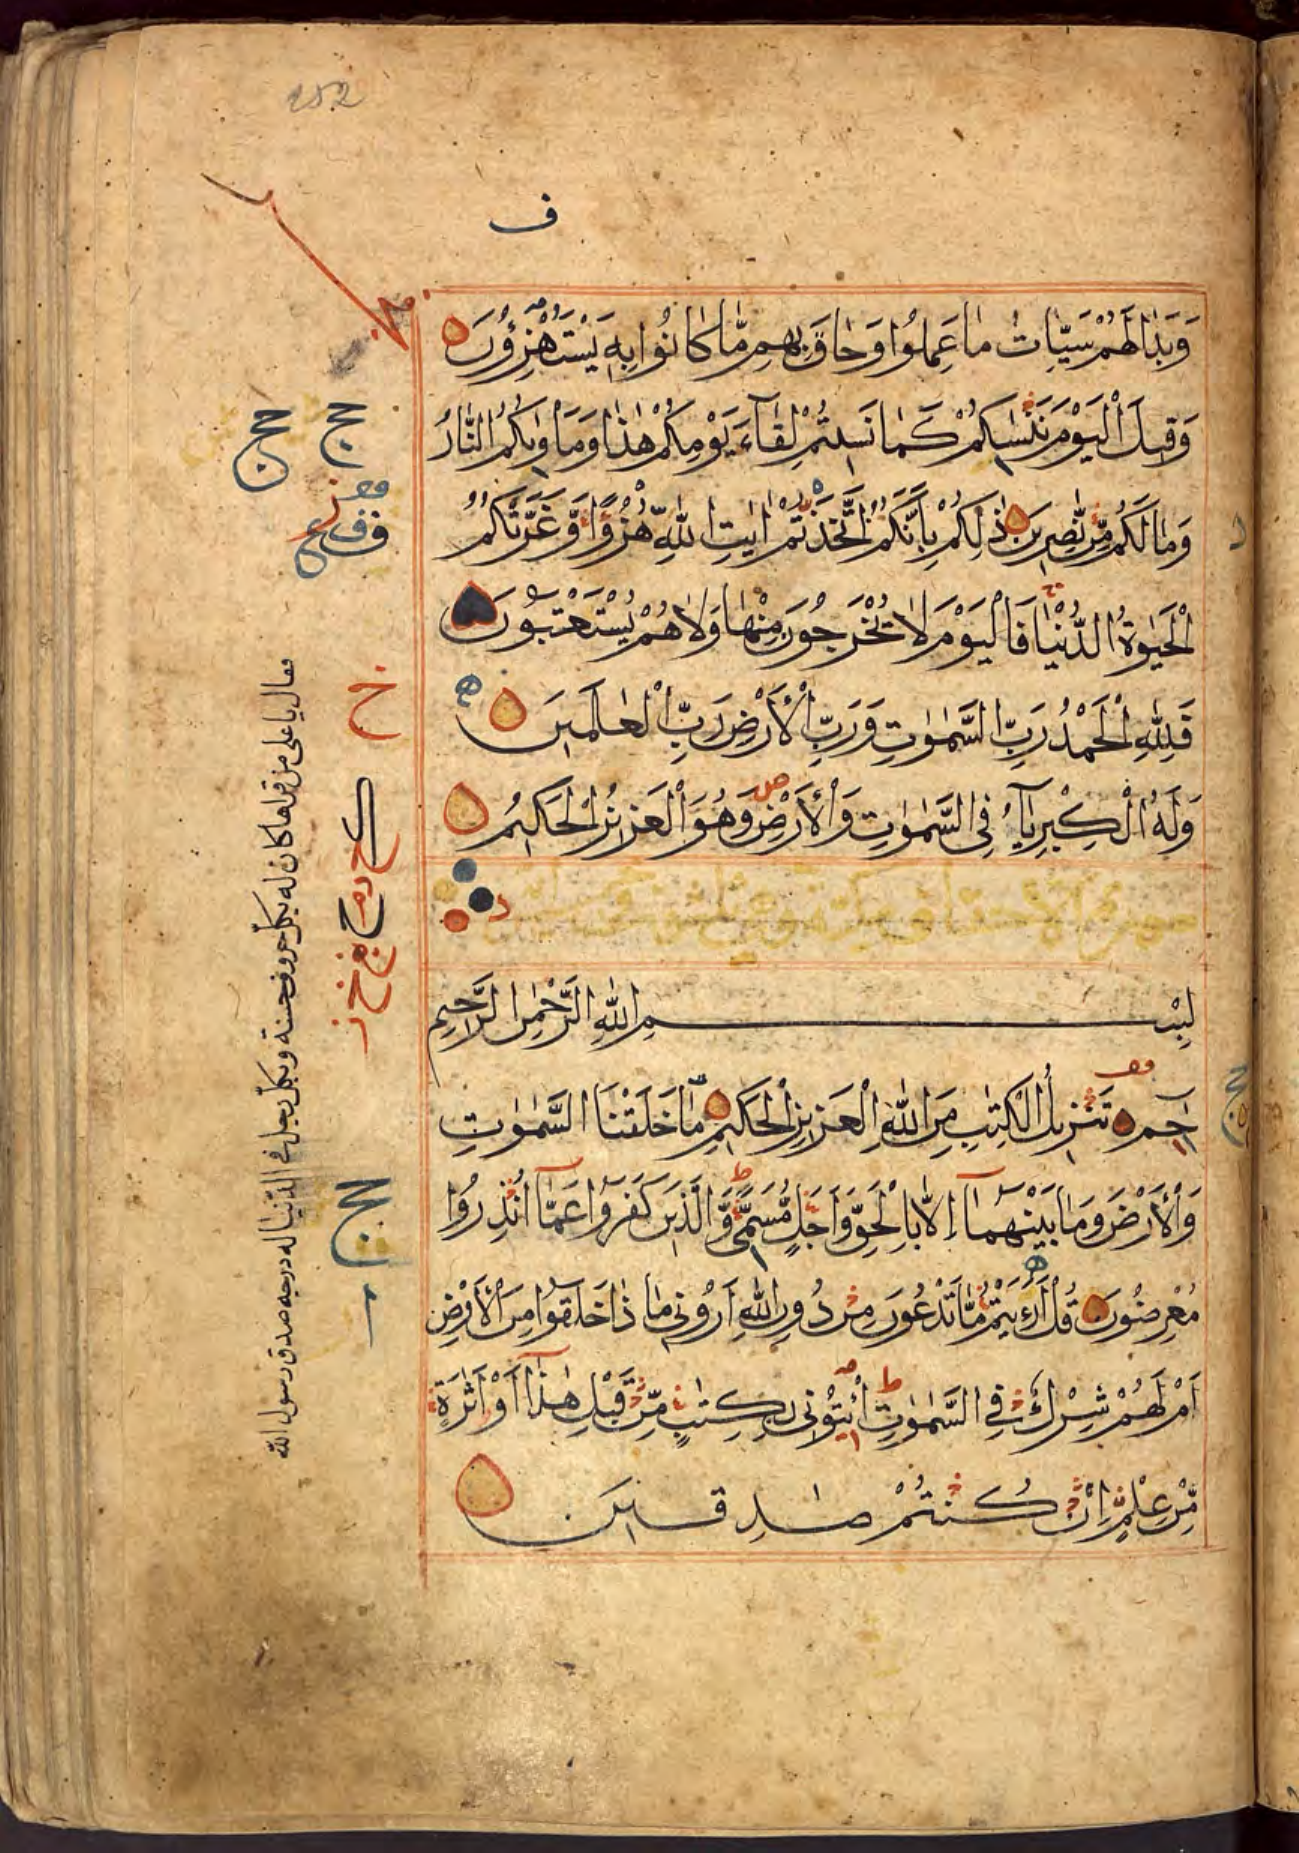 252
ف
وَبَدَا لَهُمْ سَيِّاٰتُ مَا عَمِلُوا وَحَاقَ بِهِمْ مَّا كَانُوا بِهٖ يَسْتَهْزِؤُنَ
وَقِيلَ الْيَوْمَ نَنْسٰىكُمْ كَمَا نَسِيتُمْ لِقَآءَ يَوْمِكُمْ هٰذَا وَمَاْوٰىكُمُ النَّارُ
وَمَا لَكُمْ مِّنْ نّٰصِرِينَ ذٰلِكُمْ بِاَنَّكُمُ اتَّخَذْتُمْ اٰيٰتِ اللّٰهِ هُزُوًا وَّغَرَّتْكُمُ
الْحَيٰوةُ الدُّنْيَا فَالْيَوْمَ لَا يُخْرَجُونَ مِنْهَا وَلَا هُمْ يُسْتَعْتَبُونَ
فَلِلّٰهِ الْحَمْدُ رَبِّ السَّمٰوٰتِ وَرَبِّ الْاَرْضِ رَبِّ الْعٰلَمِينَ
وَلَهُ الْكِبْرِيَآءُ فِى السَّمٰوٰتِ وَالْاَرْضِ وَهُوَ الْعَزِيزُ الْحَكِيمُ
بِسْمِ اللّٰهِ الرَّحْمٰنِ الرَّحِيمِ
حٰمٓ تَنْزِيلُ الْكِتٰبِ مِنَ اللّٰهِ الْعَزِيزِ الْحَكِيمِ مَا خَلَقْنَا السَّمٰوٰتِ
وَالْاَرْضَ وَمَا بَيْنَهُمَآ اِلَّا بِالْحَقِّ وَاَجَلٍ مُّسَمًّى وَّالَّذِينَ كَفَرُوا عَمَّآ اُنْذِرُوا
مُعْرِضُونَ قُلْ اَرَءَيْتُمْ مَّا تَدْعُونَ مِنْ دُونِ اللّٰهِ اَرُونِى مَاذَا خَلَقُوا مِنَ الْاَرْضِ
اَمْ لَهُمْ شِرْكٌ فِى السَّمٰوٰتِ اِئْتُونِى بِكِتٰبٍ مِّنْ قَبْلِ هٰذَآ اَوْ اَثٰرَةٍ
مِّنْ عِلْمٍ اِنْ كُنْتُمْ صٰدِقِينَ
فقال يا على من قراها كان له بكل حروف حسنة وبكل رجل فى الدنيا له درجه صدق رسول الله